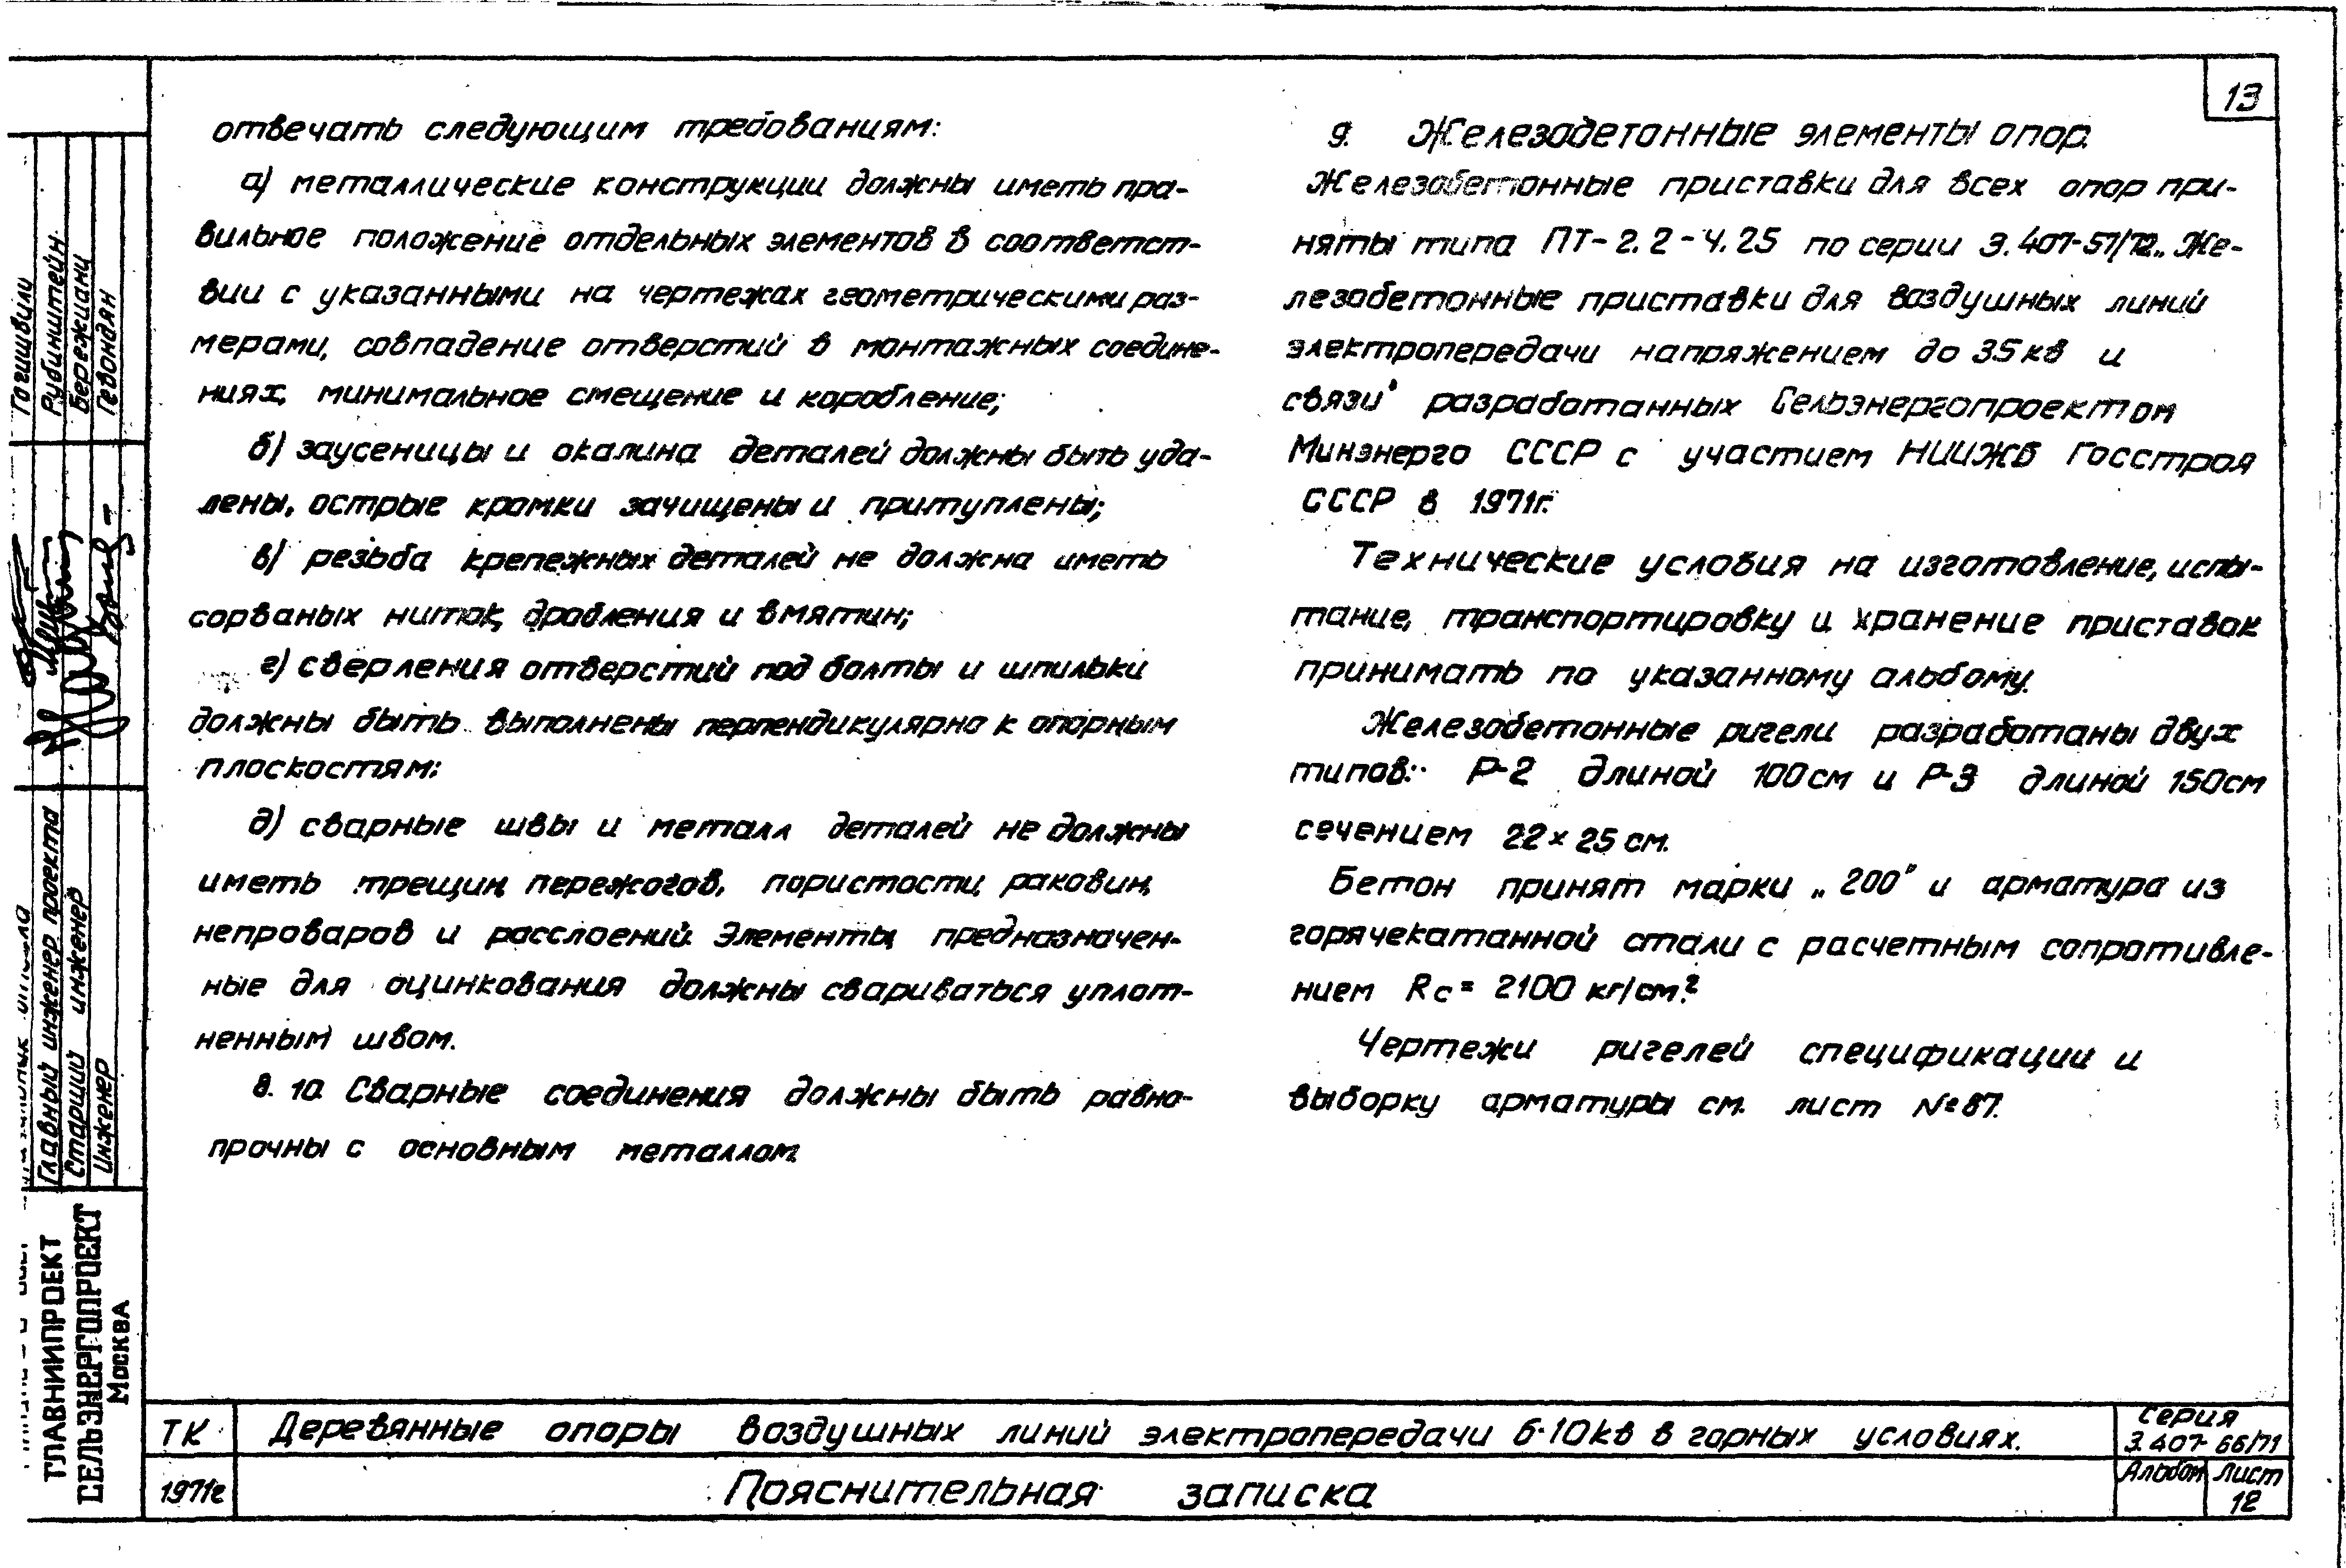 13
отвечать следующим требованиям:
а) металлические конструкции должны иметь пра-
вильное положение отдельных элементов в соответст-
вии с указанными на чертежах геометрическими раз-
мерами, совпадение отверстий в монтажных соедине-
ниях, минимальное смещение и коробление;
б) заусеницы и окалина деталей должны быть уда-
лены, острые кромки зачищены и притуплены;
в) резьба крепежных деталей не должна иметь
сорваных ниток, дробления и вмятин;
г) сверления отверстий под болты и шпильки
должны быть выполнены перпендикулярно к опорным
плоскостям;
д) сварные швы и металл деталей не должны
иметь трещин, пережогов, пористости, раковин,
непроваров и расслоений. Элементы, предназначен-
ные для оцинкования должны свариваться уплот-
ненным швом.
8. 10. Сварные соединения должны быть равно-
прочны с основным металлом.
9. Железобетонные элементы опор.
Железобетонные приставки для всех опор при-
няты типа ПТ-2.2-4.25 по серии 3.407-57/72 „Же-
лезобетонные приставки для воздушных линий
электропередачи напряжением до 35 кв и
связи" разработанных Сельэнергопроектом
Минэнерго СССР с участием НИИЖБ Госстроя
СССР в 1971г.
Технические условия на изготовление, испы-
тание, транспортировку и хранение приставок
принимать по указанному альбому.
Железобетонные ригели разработаны двух
типов: Р-2 длиной 100 см и Р-3 длиной 150 см
сечением 22 × 25 см.
Бетон принят марки „200" и арматура из
горячекатанной стали с расчетным сопротивле-
нием Rc = 2100 кг/см².
Чертежи ригелей спецификации и
выборку арматуры см. лист № 87.
Гогишвили
Рубинштейн
Бережиани
Гевондян
Главный инженер проекта
Старший инженер
Инженер
ГЛАВНИИПРОЕКТ
СЕЛЬЭНЕРГОПРОЕКТ
МОСКВА
ТК
Деревянные опоры воздушных линий электропередачи 6-10кв в горных условиях.
серия
3.407-66/71
1971г
Пояснительная записка
Альбом
Лист
12